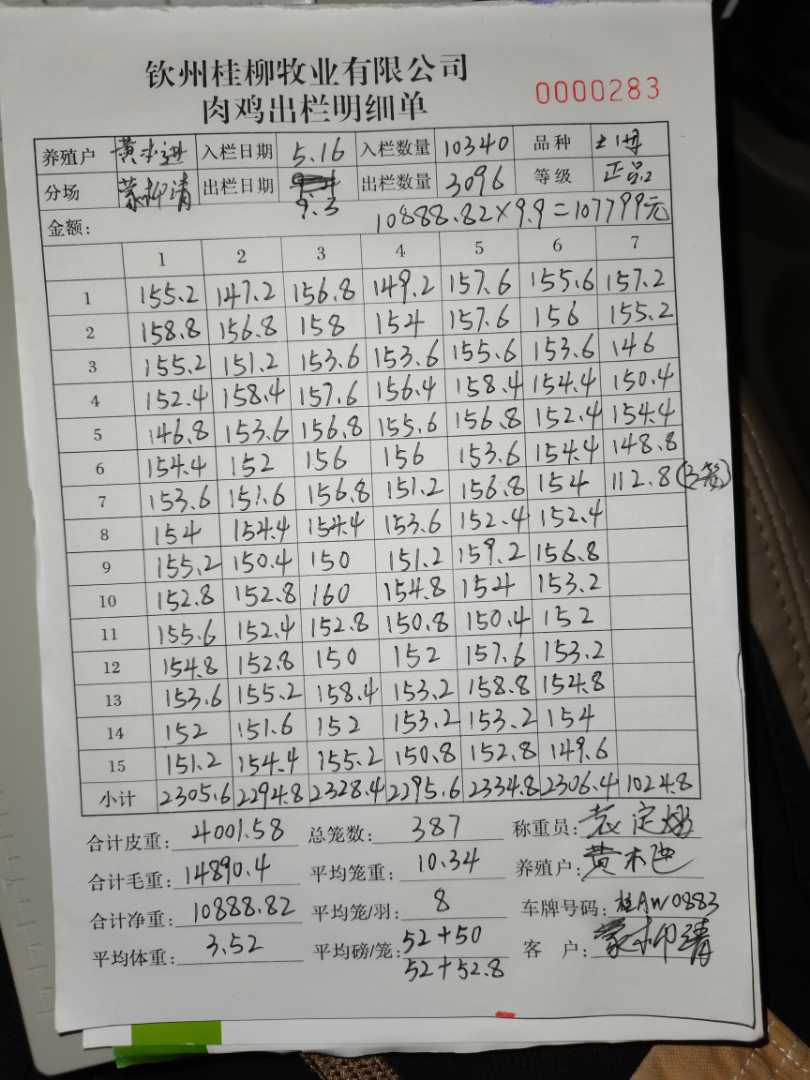 钦州桂柳牧业有限公司
肉鸡出栏明细单 0000283
养殖户 黄木进 入栏日期 5.16 入栏数量 10340 品种 土1号
分场 蒙柳清 出栏日期 9.3 出栏数量 3096 等级 正品2
金额: 10888.82×9.9=107799元
1 2 3 4 5 6 7
1 155.2 147.2 156.8 149.2 157.6 155.6 157.2
2 158.8 156.8 158 154 157.6 156 155.2
3 155.2 151.2 153.6 153.6 155.6 153.6 146
4 152.4 158.4 157.6 156.4 158.4 154.4 150.4
5 146.8 153.6 156.8 155.6 156.8 152.4 154.4
6 154.4 152 156 156 153.6 154.4 148.8
7 153.6 151.6 156.8 151.2 156.8 154 112.8(3笼)
8 154 154.4 154.4 153.6 152.4 152.4
9 155.2 150.4 150 151.2 159.2 156.8
10 152.8 152.8 160 154.8 154 153.2
11 155.6 152.4 152.8 150.8 150.4 152
12 154.8 152.8 150 152 157.6 153.2
13 153.6 155.2 158.4 153.2 158.8 154.8
14 152 151.6 152 153.2 153.2 154
15 151.2 154.4 155.2 150.8 152.8 149.6
小计 2305.6 2294.8 2328.4 2295.6 2334.8 2306.4 1024.8
合计皮重: 4001.58 总笼数: 387 称重员:
合计毛重: 14890.4 平均笼重: 10.34 养殖户:
合计净重: 10888.82 平均笼/羽: 8 车牌号码: 桂AW0883
平均体重: 3.52 平均磅/笼: 52+50 客 户: 蒙柳清
52+52.8